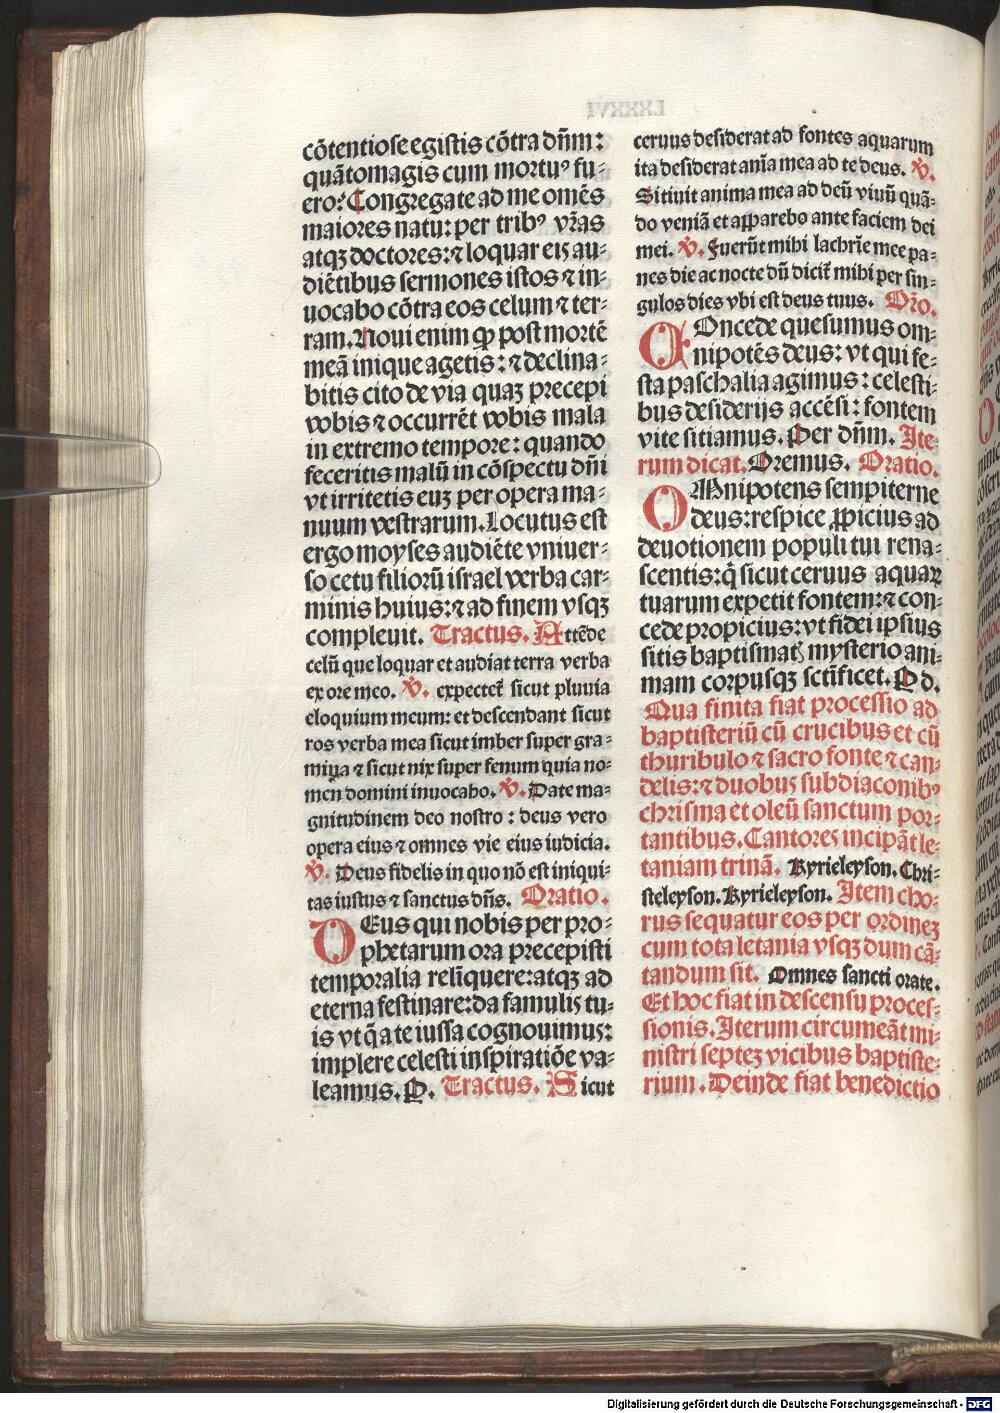 cōtentiose egistis cōtra dn̄m:
quātomagis cum mortuꝰ fu-
ero: Congregate ad me omēs
maiores natu: per tribꝰ vr̄as
atqꝫ doctores: ⁊ loquar eis au-
diētibus sermones istos ⁊ in-
uocabo cōtra eos celum ⁊ ter-
ram. Noui enim ꝙ post mortē
meā inique agetis: ⁊ declina-
bitis cito de via quaꝫ precepi
vobis ⁊ occurrēt vobis mala
in extremo tempore: quando
feceritis malū in cōspectu dn̄i
vt irritetis euꝫ per opera ma-
nuum vestrarum. Locutus est
ergo moyses audiēte vniuer-
so cetu filiorū israel verba car-
minis huius: ⁊ ad finem vsqꝫ
compleuit. Tractus. Attēde
celū que loquar et audiat terra verba
ex ore meo. ℣. expectet̄ sicut pluuia
eloquium meum: et descendant sicut
ros verba mea sicut imber super gra-
mina ⁊ sicut nix super fenum quia no-
men domini inuocabo. ℣. Date ma-
gnitudinem deo nostro: deus vero
opera eius ⁊ omnes vie eius iudicia.
℣. Deus fidelis in quo nō est iniqui-
tas iustus ⁊ sanctus dn̄s. Oratio.
DEus qui nobis per pro-
phetarum ora precepisti
temporalia relīquere: atqꝫ ad
eterna festinare: da famulis tu-
is vt q̄ a te iussa cognouimus:
implere celesti inspiratiōe va-
leamus. P. Tractus. Sicut
ceruus desiderat ad fontes aquarum
ita desiderat anīa mea ad te deus. ℣.
Sitiuit anima mea ad deū viuū quā-
do veniā et apparebo ante faciem dei
mei. ℣. Fuerūt mihi lachrīe mee pa-
nes die ac nocte dū dicit̄ mihi per sin-
gulos dies vbi est deus tuus. Or̄o.
COncede quesumus om-
nipotēs deus: vt qui fe-
sta paschalia agimus: celesti-
bus desiderijs accēsi: fontem
vite sitiamus. Per dn̄m. Ite-
rum dicat. Oremus. Oratio.
OMnipotens sempiterne
deus: respice ꝓpicius ad
deuotionem populi tui rena-
scentis: q̄ sicut ceruus aquaꝝ
tuarum expetit fontem: ⁊ con-
cede propicius: vt fidei ipsius
sitis baptismatꝭ mysterio ani-
mam corpusqꝫ sct̄ificet. P d.
Qua finita fiat processio ad
baptisteriū cū crucibus et cū
thuribulo ⁊ sacro fonte ⁊ can-
delis: ⁊ duobus subdiaconibꝰ
chrisma et oleū sanctum por-
tantibus. Cantores incipāt le-
taniam trinā. Kyrieleyson. Chri-
steleyson. Kyrieleyson. Item cho-
rus sequatur eos per ordineꝫ
cum tota letania vsqꝫ dum cā-
tandum sit. Omnes sancti orate.
Et hoc fiat in descensu proces-
sionis. Iterum circumeāt mi-
nistri septeꝫ vicibus baptiste-
rium. Deinde fiat benedictio
Digitalisierung gefördert durch die Deutsche Forschungsgemeinschaft - DFG